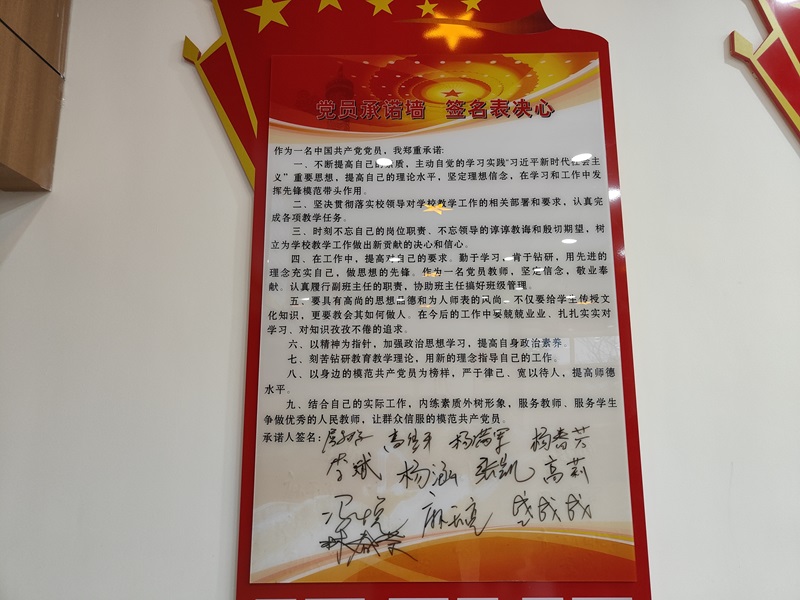 党员承诺墙 签名表决心
作为一名中国共产党党员，我郑重承诺:
一、不断提高自己的素质，主动自觉的学习实践“习近平新时代社会主
义”重要思想，提高自己的理论水平，坚定理想信念，在学习和工作中发
挥先锋模范带头作用。
二、坚决贯彻落实校领导对学校教学工作的相关部署和要求，认真完
成各项教学任务。
三、时刻不忘自己的岗位职责、不忘领导的谆谆教诲和殷切期望，树
立为学校教学工作做出新贡献的决心和信心。
四、在工作中，提高对自己的要求。勤于学习，肯于钻研，用先进的
理念充实自己，做思想的先锋。作为一名党员教师，坚定信念，敬业奉
献。认真履行副班主任的职责，协助班主任搞好班级管理。
五、要具有高尚的思想品德和为人师表的风尚。不仅要给学生传授文
化知识，更要教会其如何做人。在今后的工作中要兢兢业业、扎扎实实对
学习、对知识孜孜不倦的追求。
六、以精神为指针，加强政治思想学习，提高自身政治素养。
七、刻苦钻研教育教学理论，用新的理念指导自己的工作。
八、以身边的模范共产党员为榜样，严于律己、宽以待人，提高师德
水平。
九、结合自己的实际工作，内练素质外树形象，服务教师、服务学生
争做优秀的人民教师，让群众信服的模范共产党员。
承诺人签名: 杨春芳
李斌 杨涵 张凯 高莉